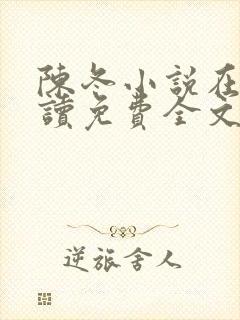 陳冬小說在
讀免費全文
逆旅舍人